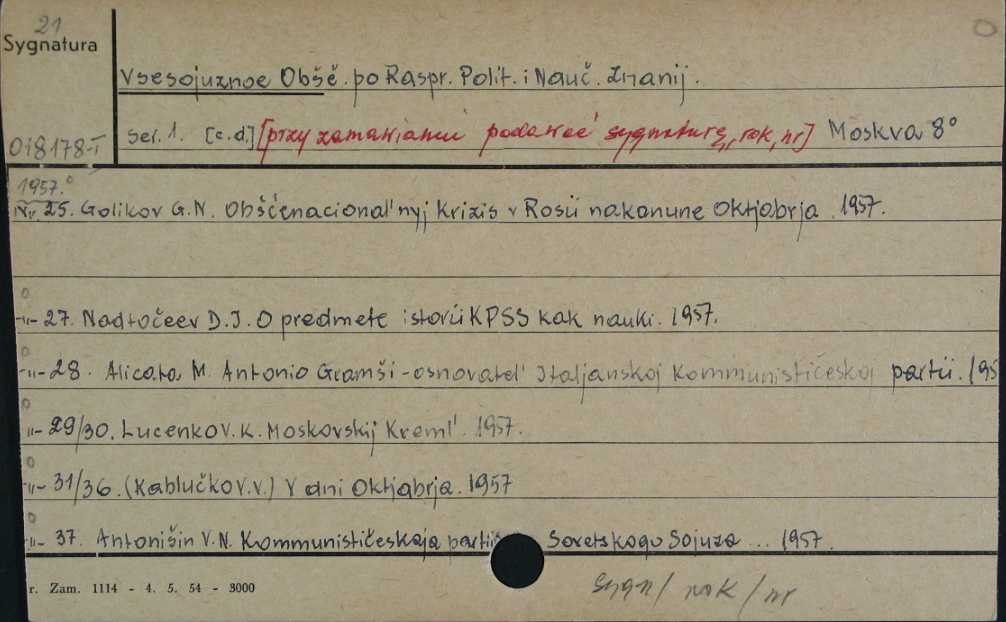 21
Sygnatura
Vsesojuznoe Obšč. po Raspr. Polit. i Nauč. Znanij.
018178-I ser. 1. [c.d.] [przy zamawianiu podawać sygnaturę, rok, nr] Moskva 8°
1957.
Nr 25. Golikov G.N. Obščenacional'nyj Krizis v Rosii nakanune Oktjabrja. 1957.
-"- 27. Nadtočeev D.J. O predmete istorii KPSS kak nauki. 1957.
-"- 28. Alicata M. Antonio Gramši - osnovatel' Italjanskoj Kommunističeskoj partii. 195
-"- 29/30. Lucenko V. K. Moskovskij Kreml'. 1957.
-"- 31/36. (Kablučko V.V.) V dni Oktjabrja. 1957
-"- 37. Antonišin V.N. Kommunističeskaja partii Sovetskogo Sojuza ... 1957.
r. Zam. 1114 - 4. 5. 54 - 3000
sygn / rok / nr